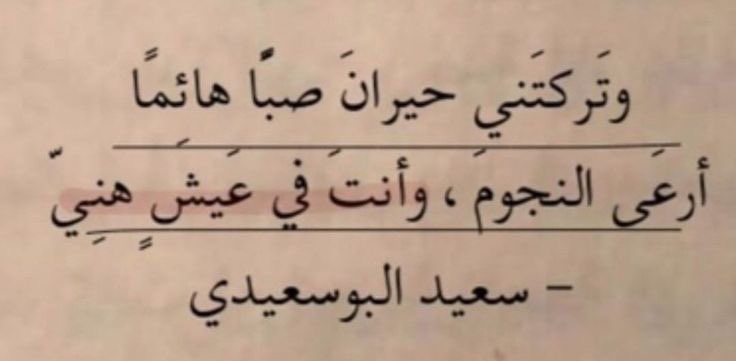 وتَركتَني حيرانَ صبًا هائمًا
أرعَى النجومَ ، وأنتَ في عَيشَ هنِيّ
– سعيد البوسعيدي